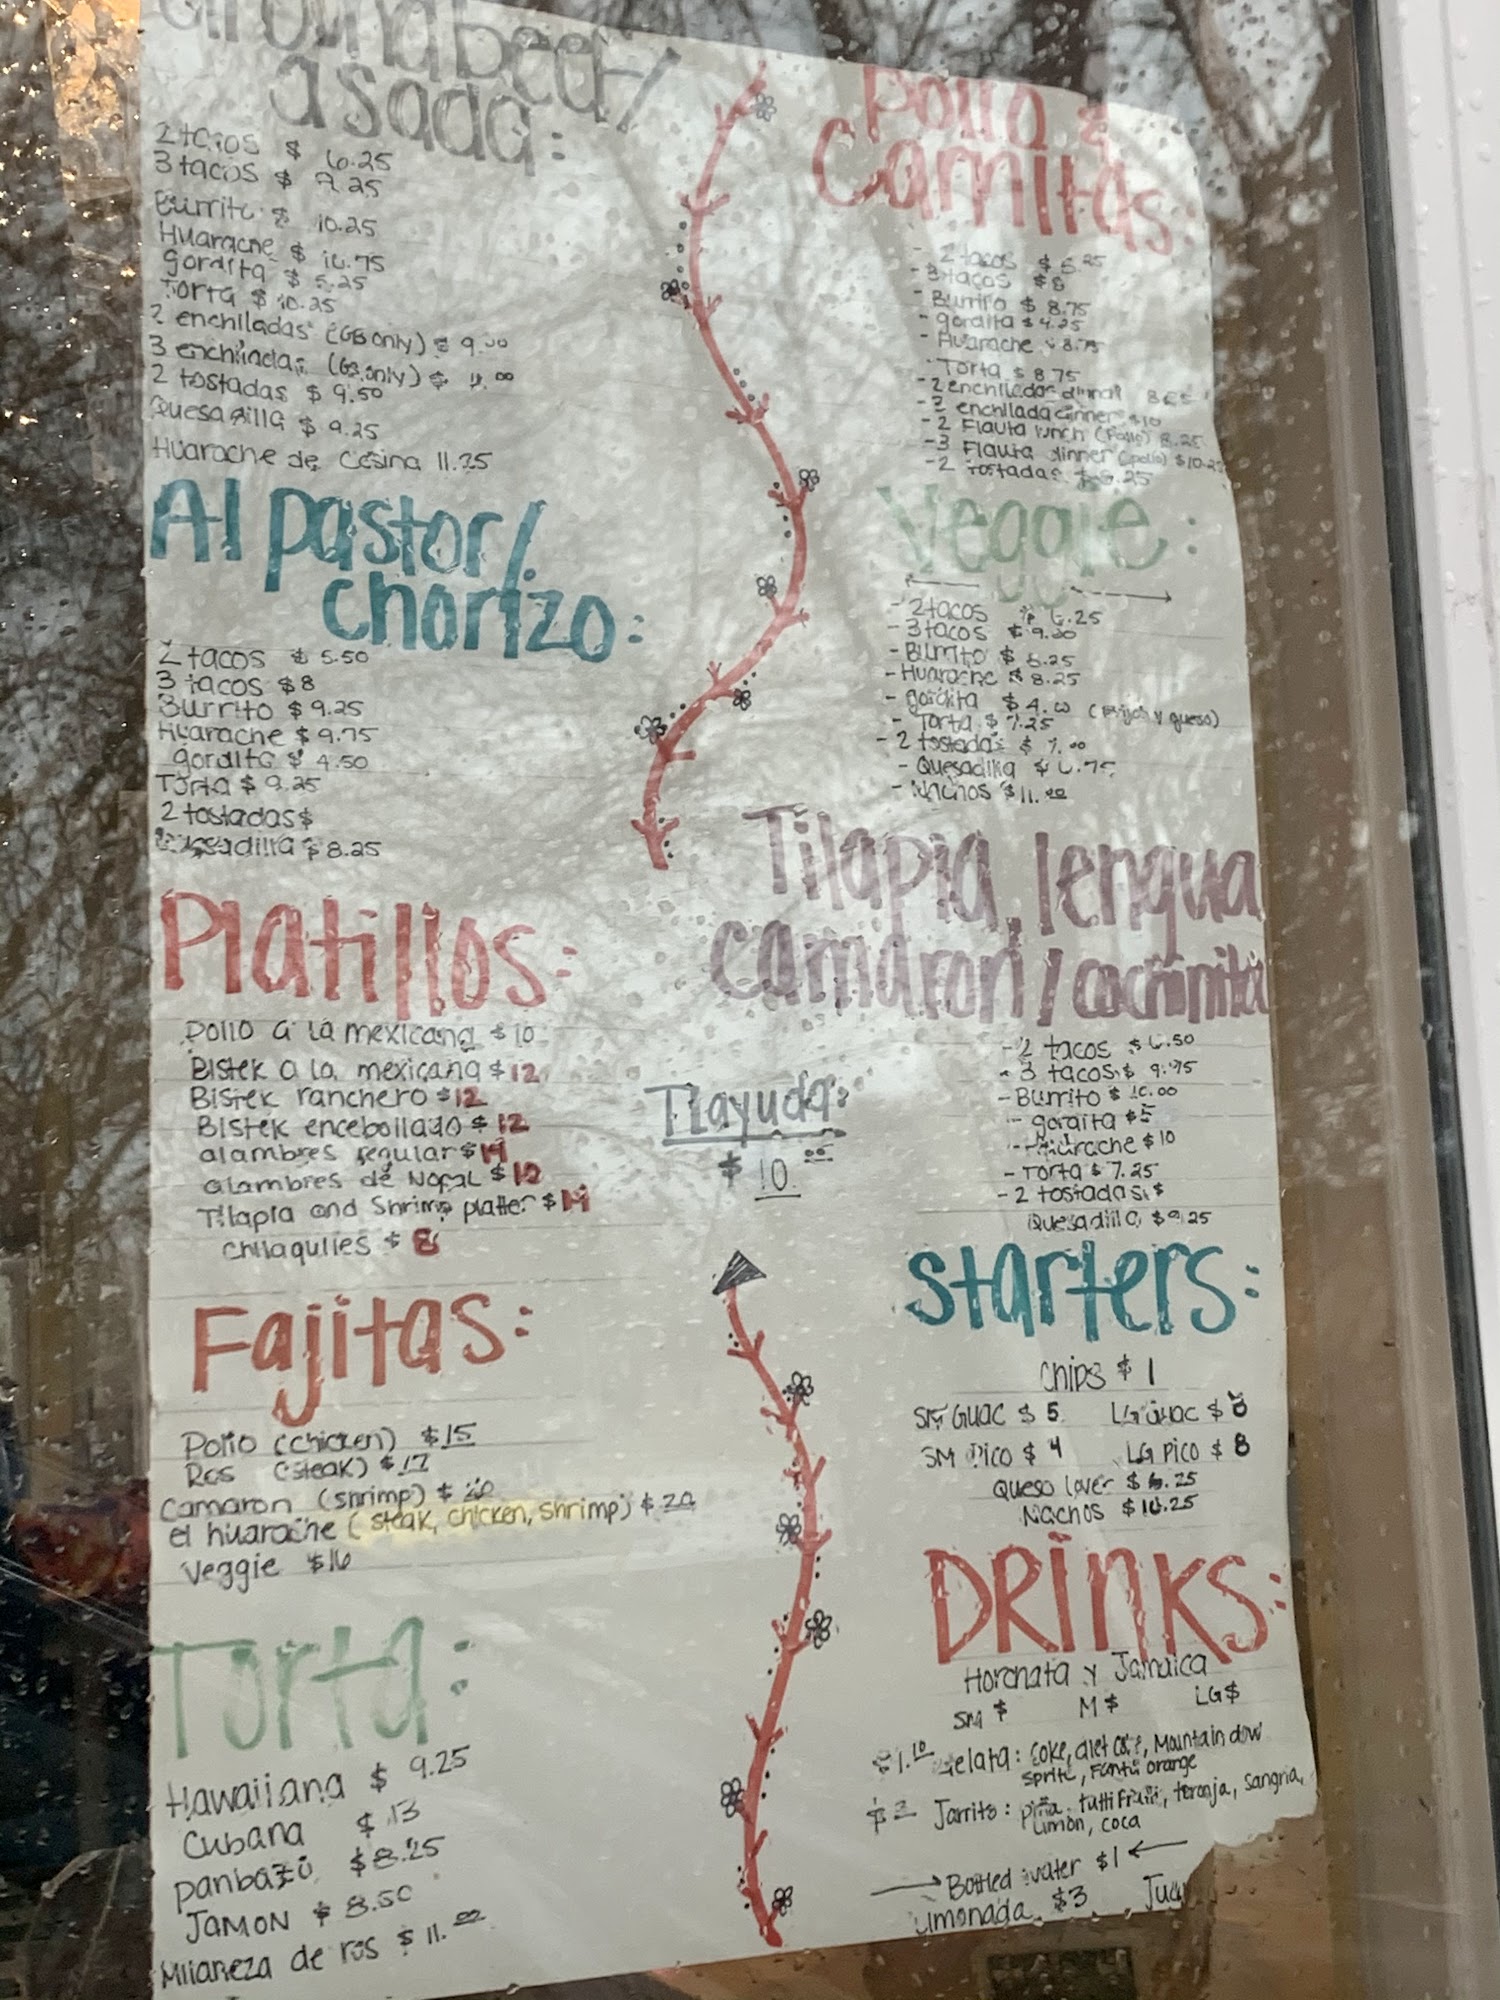 Ground beef/
asada:
2 tacos $ 6.25
3 tacos $ 9.25
Burrito $ 10.25
Huarache $ 10.75
gordita $ 5.25
Torta $ 10.25
2 enchiladas (GB only) $ 9.00
3 enchiladas (GB only) $ 11.00
2 tostadas $ 9.50
Quesadilla $ 9.25
Huarache de Cesina 11.25
Al pastor/
chorizo:
2 tacos $ 5.50
3 tacos $ 8
Burrito $ 9.25
Huarache $ 9.75
gordita $ 4.50
Torta $ 9.25
2 tostadas $
Quesadilla $ 8.25
Platillos:
pollo a la mexicana $ 10
Bistek a la mexicana $ 12
Bistek ranchero $ 12
Bistek encebollado $ 12
alambres regular $ 14
alambres de Nopal $
Tilapia and Shrimp platter $ 14
chilaquiles $ 8
Tlayuda:
$ 10.00
Fajitas:
Pollo (chicken) $ 15
Res (steak) $ 17
Camaron (shrimp) $ 20
el huarache (steak, chicken, shrimp) $ 20
Veggie $16
Torta:
Hawaiiana $ 9.25
Cubana $ 13
panbazo $ 8.25
JAMON $ 8.50
Milaneza de res $ 11.00
Pollo &
Carnitas:
- 2 tacos $ 5.25
- 3 tacos $ 8
- Burrito $ 8.75
- gordita $ 4.25
- Huarache $ 8.75
- Torta $ 8.75
- 2 enchiladas
enchilada dinner $10
- 2 Flauta lunch (Pollo) 8.25
- 3 Flauta dinner (pollo) $10.25
- 2 tostadas
Veggie:
- 2 tacos $ 6.25
- 3 tacos $ 9.00
- Burrito $ 8.25
- Huarache $ 8.25
- gordita $ 4.00 (Frijol y queso)
- Torta $ 7.25
- 2 tostadas $ 7.00
- Quesadilla $ 6.75
- Nachos $ 11.00
Tilapia, lengua
camaron/cochinita
- 2 tacos $ 6.50
- 3 tacos $ 9.75
- Burrito $ 10.00
- gordita $5
- Huarache $ 10
- Torta $ 7.25
- 2 tostadas $
Quesadilla $ 9.25
Starters:
Chips $ 1
SM GUAC $ 5 LG GUAC $ 8
SM Pico $ 4 LG Pico $ 8
Queso lover $ 6.25
Nachos $ 10.25
DRINKS:
Horchata y Jamaica
SM $ M $ LG $
$1.10 Lelata: Coke, diet coke, Mountain dow
Sprite, Fanta orange
$ 2 Jarrito: piña, tuttiFruti, toronja, Sangria,
Limón, coca
Bottled water $1
Limonada $3